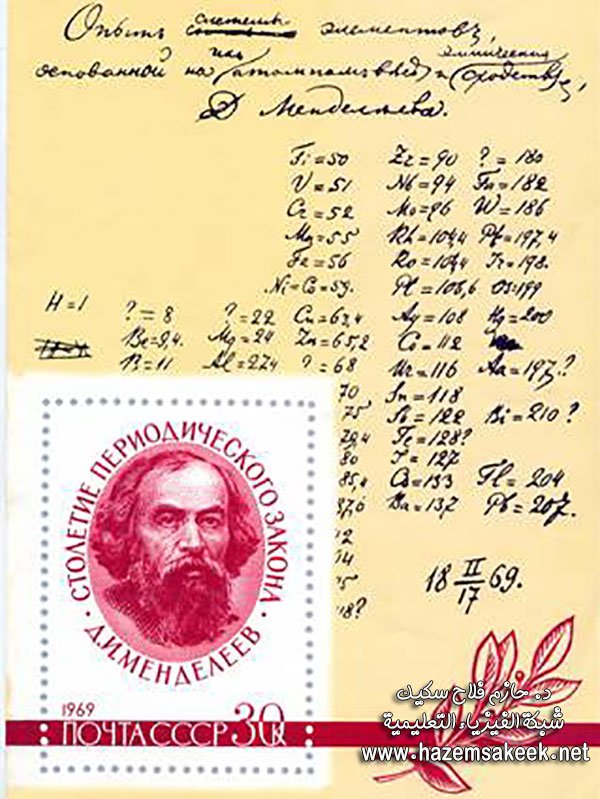 Опытъ системы элементовъ,
основанной на ихъ атомномъ вѣсѣ и химическомъ сродствѣ,
Д Менделѣева.
Ti = 50 Zr = 90 ? = 180
V = 51 Nb = 94 Ta = 182
Cr = 52 Mo = 96 W = 186
Mn = 55 Rh = 104,4 Pt = 197,4
Fe = 56 Ru = 104,4 Ir = 198.
Ni = Co = 59. Pl = 106,6 Os = 199
H = 1 ? = 8 ? = 22 Cu = 63,4 Ag = 108 Hg = 200
Be = 9,4. Mg = 24 Zn = 65,2 Cd = 112
B = 11 Al = 27,4 ? = 68 Ur = 116 Au = 197?
70 Sn = 118
75 Sb = 122 Bi = 210?
79,4 Te = 128?
80 I = 127
85,4 Cs = 133 Tl = 204
87,6 Ba = 137 Pb = 207.
18 II/17 69.
СТОЛЕТИЕ ПЕРИОДИЧЕСКОГО ЗАКОНА
• Д.И.МЕНДЕЛЕЕВ •
1969
ПОЧТА СССР 30К
د. حازم فلاح سكيك
شبكة الفيزياء التعليمية
www.hazemsakeek.net